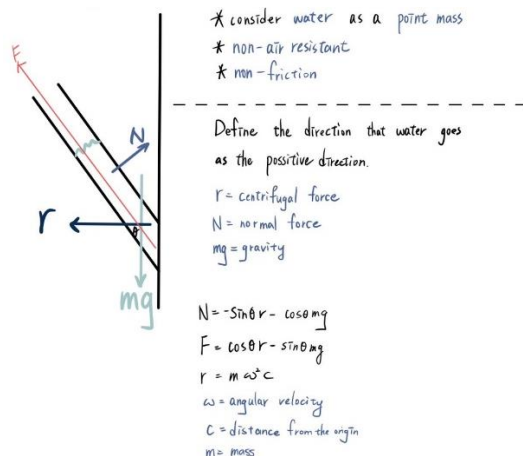 * consider water as a point mass
* non-air resistant
* non-friction
F
N
r
θ
mg
Define the direction that water goes
as the possitive direction.
r = centrifugal force
N = normal force
mg = gravity
N = -sinθ r - cosθ mg
F = cosθ r - sinθ mg
r = m ω² c
ω = angular velocity
c = distance from the origin
m = mass